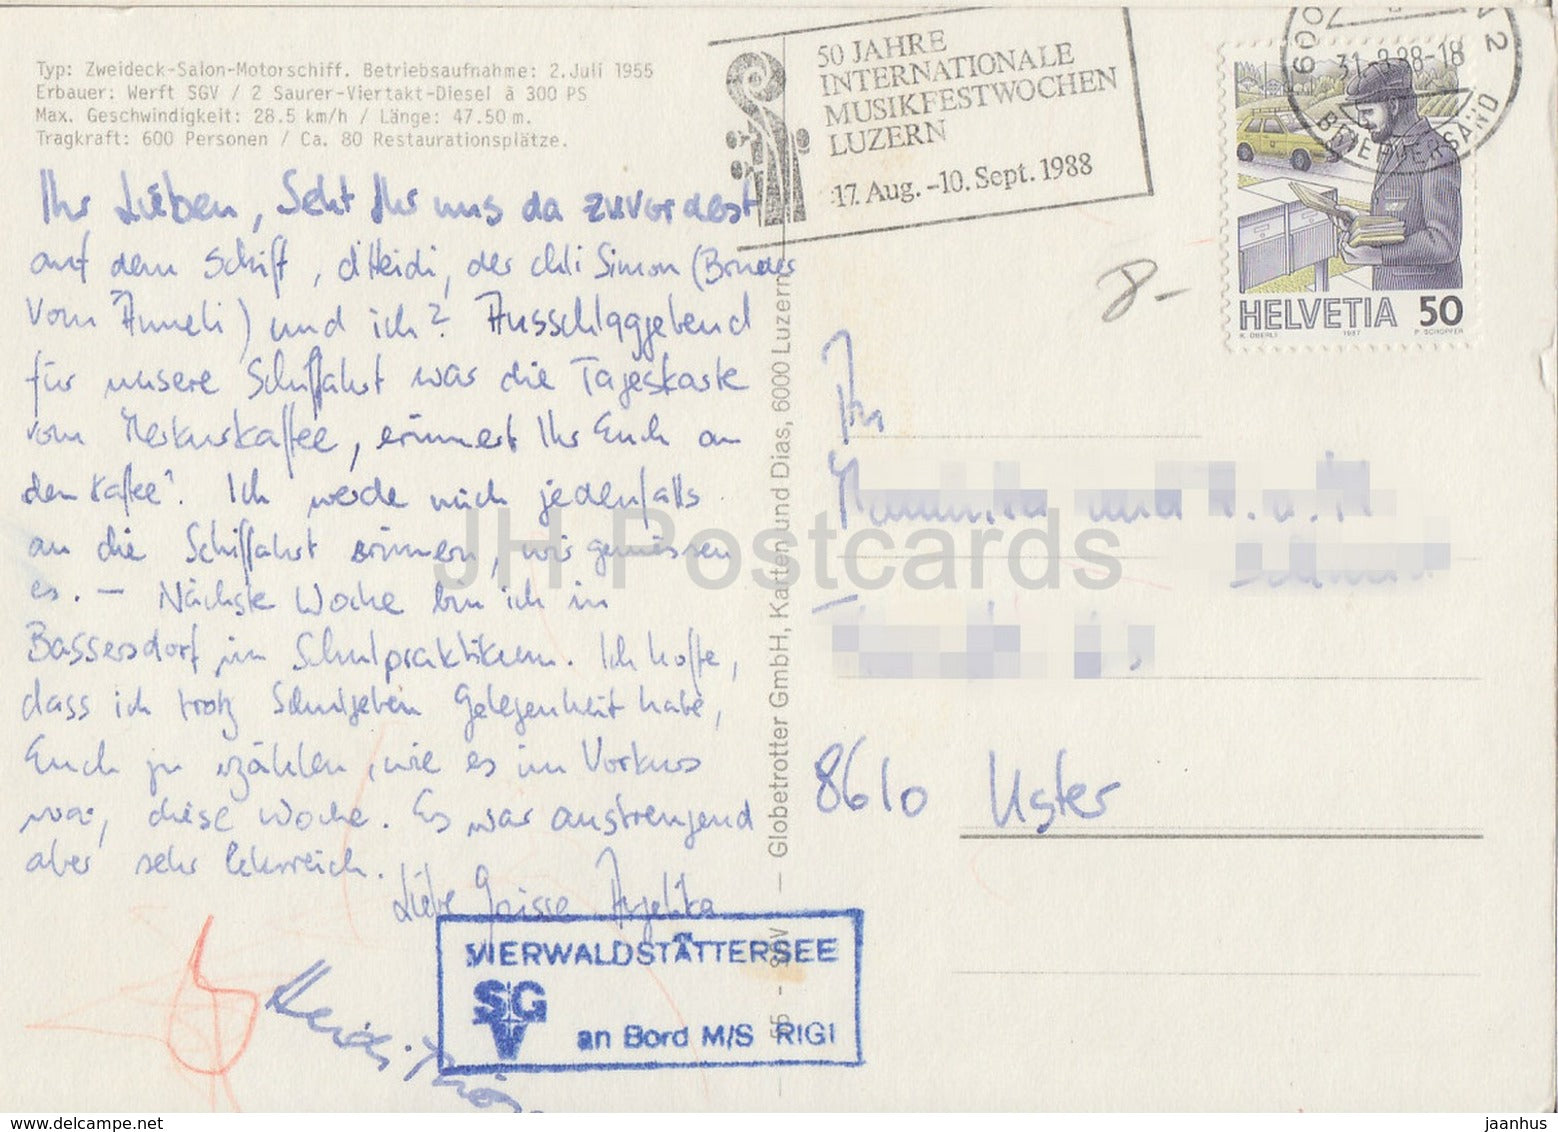 Typ: Zweideck-Salon-Motorschiff. Betriebsaufnahme: 2.Juli 1955
Erbauer: Werft SGV / 2 Saurer-Viertakt-Diesel à 300 PS
Max. Geschwindigkeit: 28.5 km/h / Länge: 47.50 m.
Tragkraft: 600 Personen / Ca. 80 Restaurationsplätze.
Ihr Lieben, Seht Ihr uns da zuvorderst
auf dem Schiff, d'Heidi, der chli Simon (Bruder
vom Anneli) und ich? Ausschlaggebend
für unsere Schiffahrt war die Tageskarte
vom Merkurkaffee, erinnert Ihr Euch an
den Kaffee? Ich werde mich jedenfalls
an die Schiffahrt erinnern, wir geniessen
es. – Nächste Woche bin ich in
Bassersdorf im Schulpraktikum. Ich hoffe,
dass ich trotz Schulgeben Gelegenheit habe,
Euch zu erzählen, wie es im Vorkurs
war, diese Woche. Es war anstrengend
aber sehr lehrreich.
Liebe Grüsse Angelika
Heidi
VIERWALDSTÄTTERSEE
SGV
an Bord M/S RIGI
55 - SGV — Globetrotter GmbH, Karten und Dias, 6000 Luzern
50 JAHRE
INTERNATIONALE
MUSIKFESTWOCHEN
LUZERN
17. Aug. -10. Sept. 1988
2
88-18
BRIEFVERSAND
HELVETIA 50
K. OBERLI 1987 P. SCHOPFER
8-
An
und
8610 Uster
JH Postcards
jaanhus